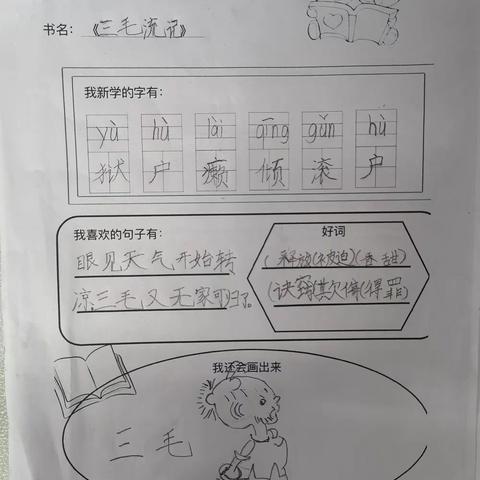 书名：《三毛流记》
我新学的字有：
yù hù lài qīng gǔn hù
狱 户 癞 倾 滚 户
我喜欢的句子有：
眼见天气开始转
凉,三毛又无家可归了。
好词
(释放)(被迫)(香甜)
(诀窍)(其欠偿)(得罪)
我还会画出来
三毛